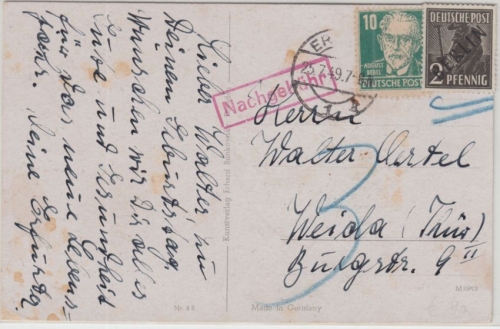 Lieber Walter, zu
Deinem Geburtstag
wünschen wir Dir alles
Gute und Gesundheit
für das neue Lebens-
jahr. Deine Erfurter
Nachgebühr
10
AUGUST BEBEL
DEUTSCHE POST
DEUTSCHE POST
BERLIN
2 PFENNIG
ER
Herrn
Walter Oertel
Weida (Thür)
Burgstr. 9 II
3
Kunstverlag Erhard
Nr. 48
Made in Germany